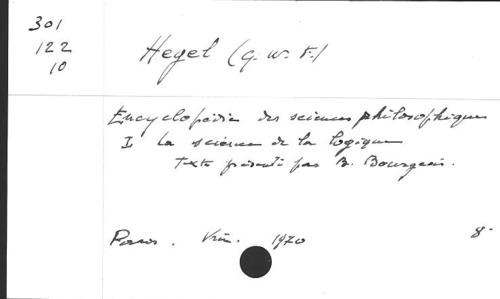 301
122
10
Hegel (G. W. F.)
Encyclopédie des sciences philosophiques
I La science de la logique
Texte présenté par B. Bourgeois.
Paris. Vrin. 1970 8-